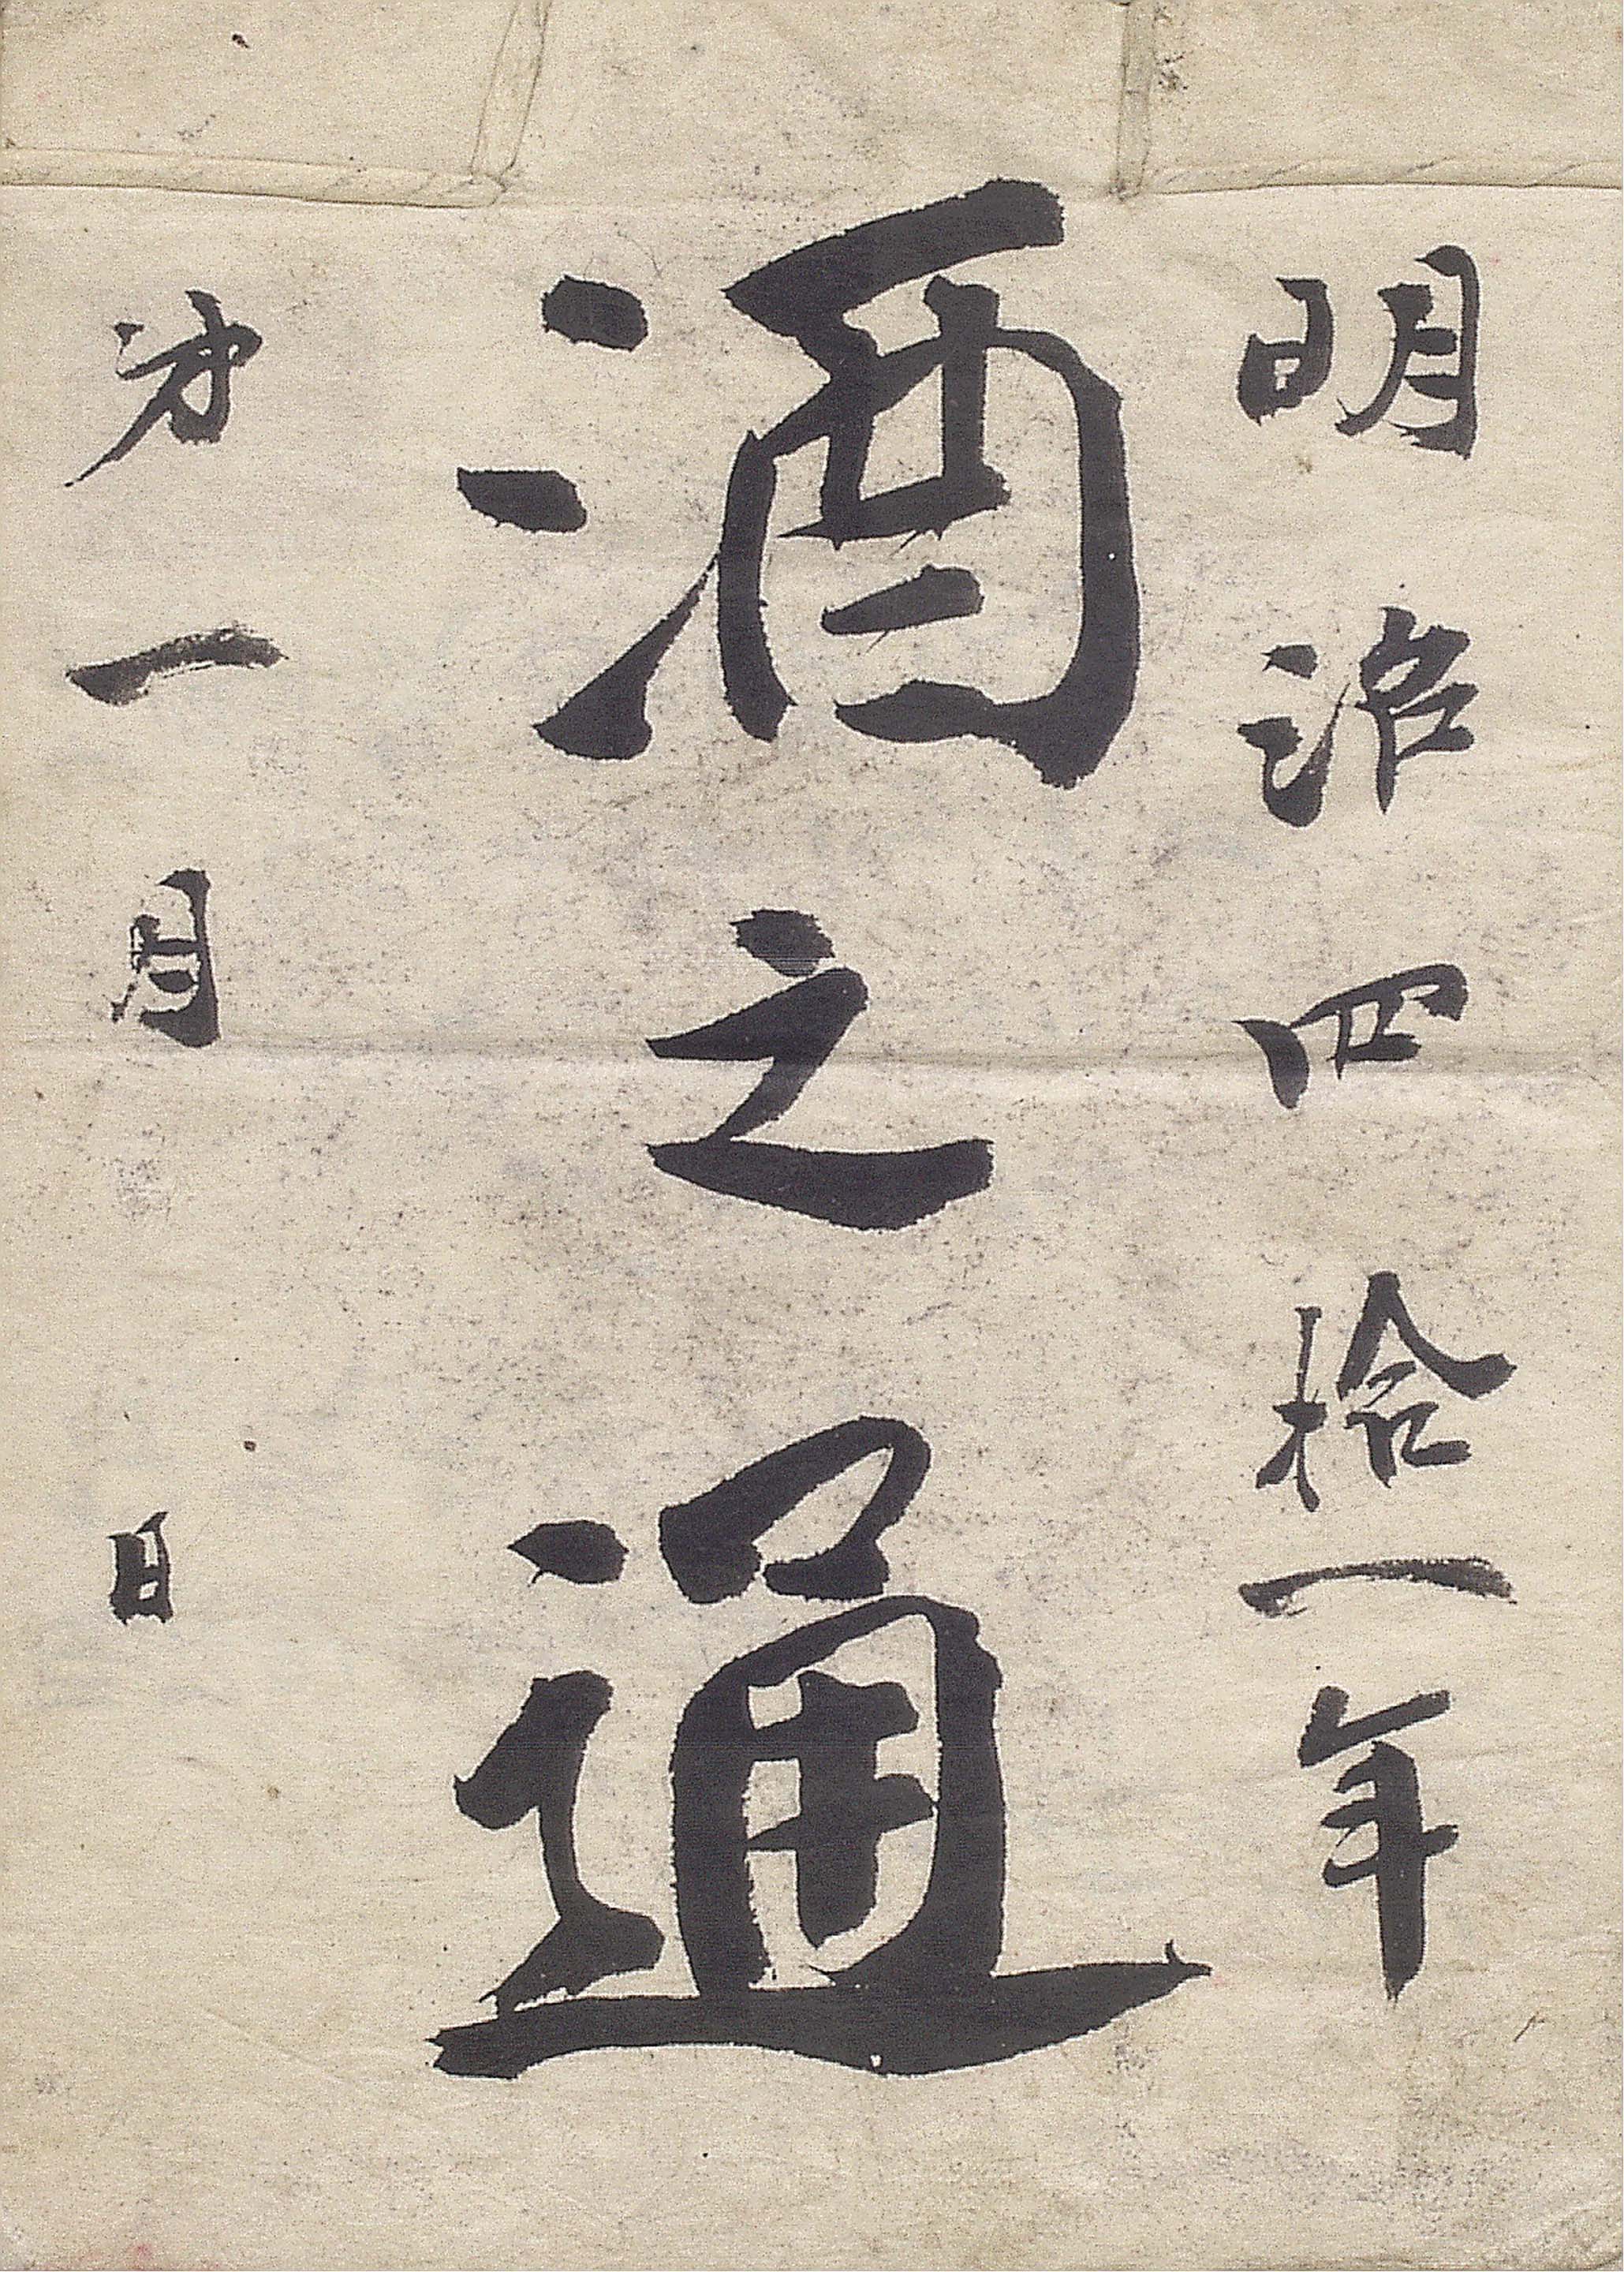 明治四拾一年
酒之通
第一月　日